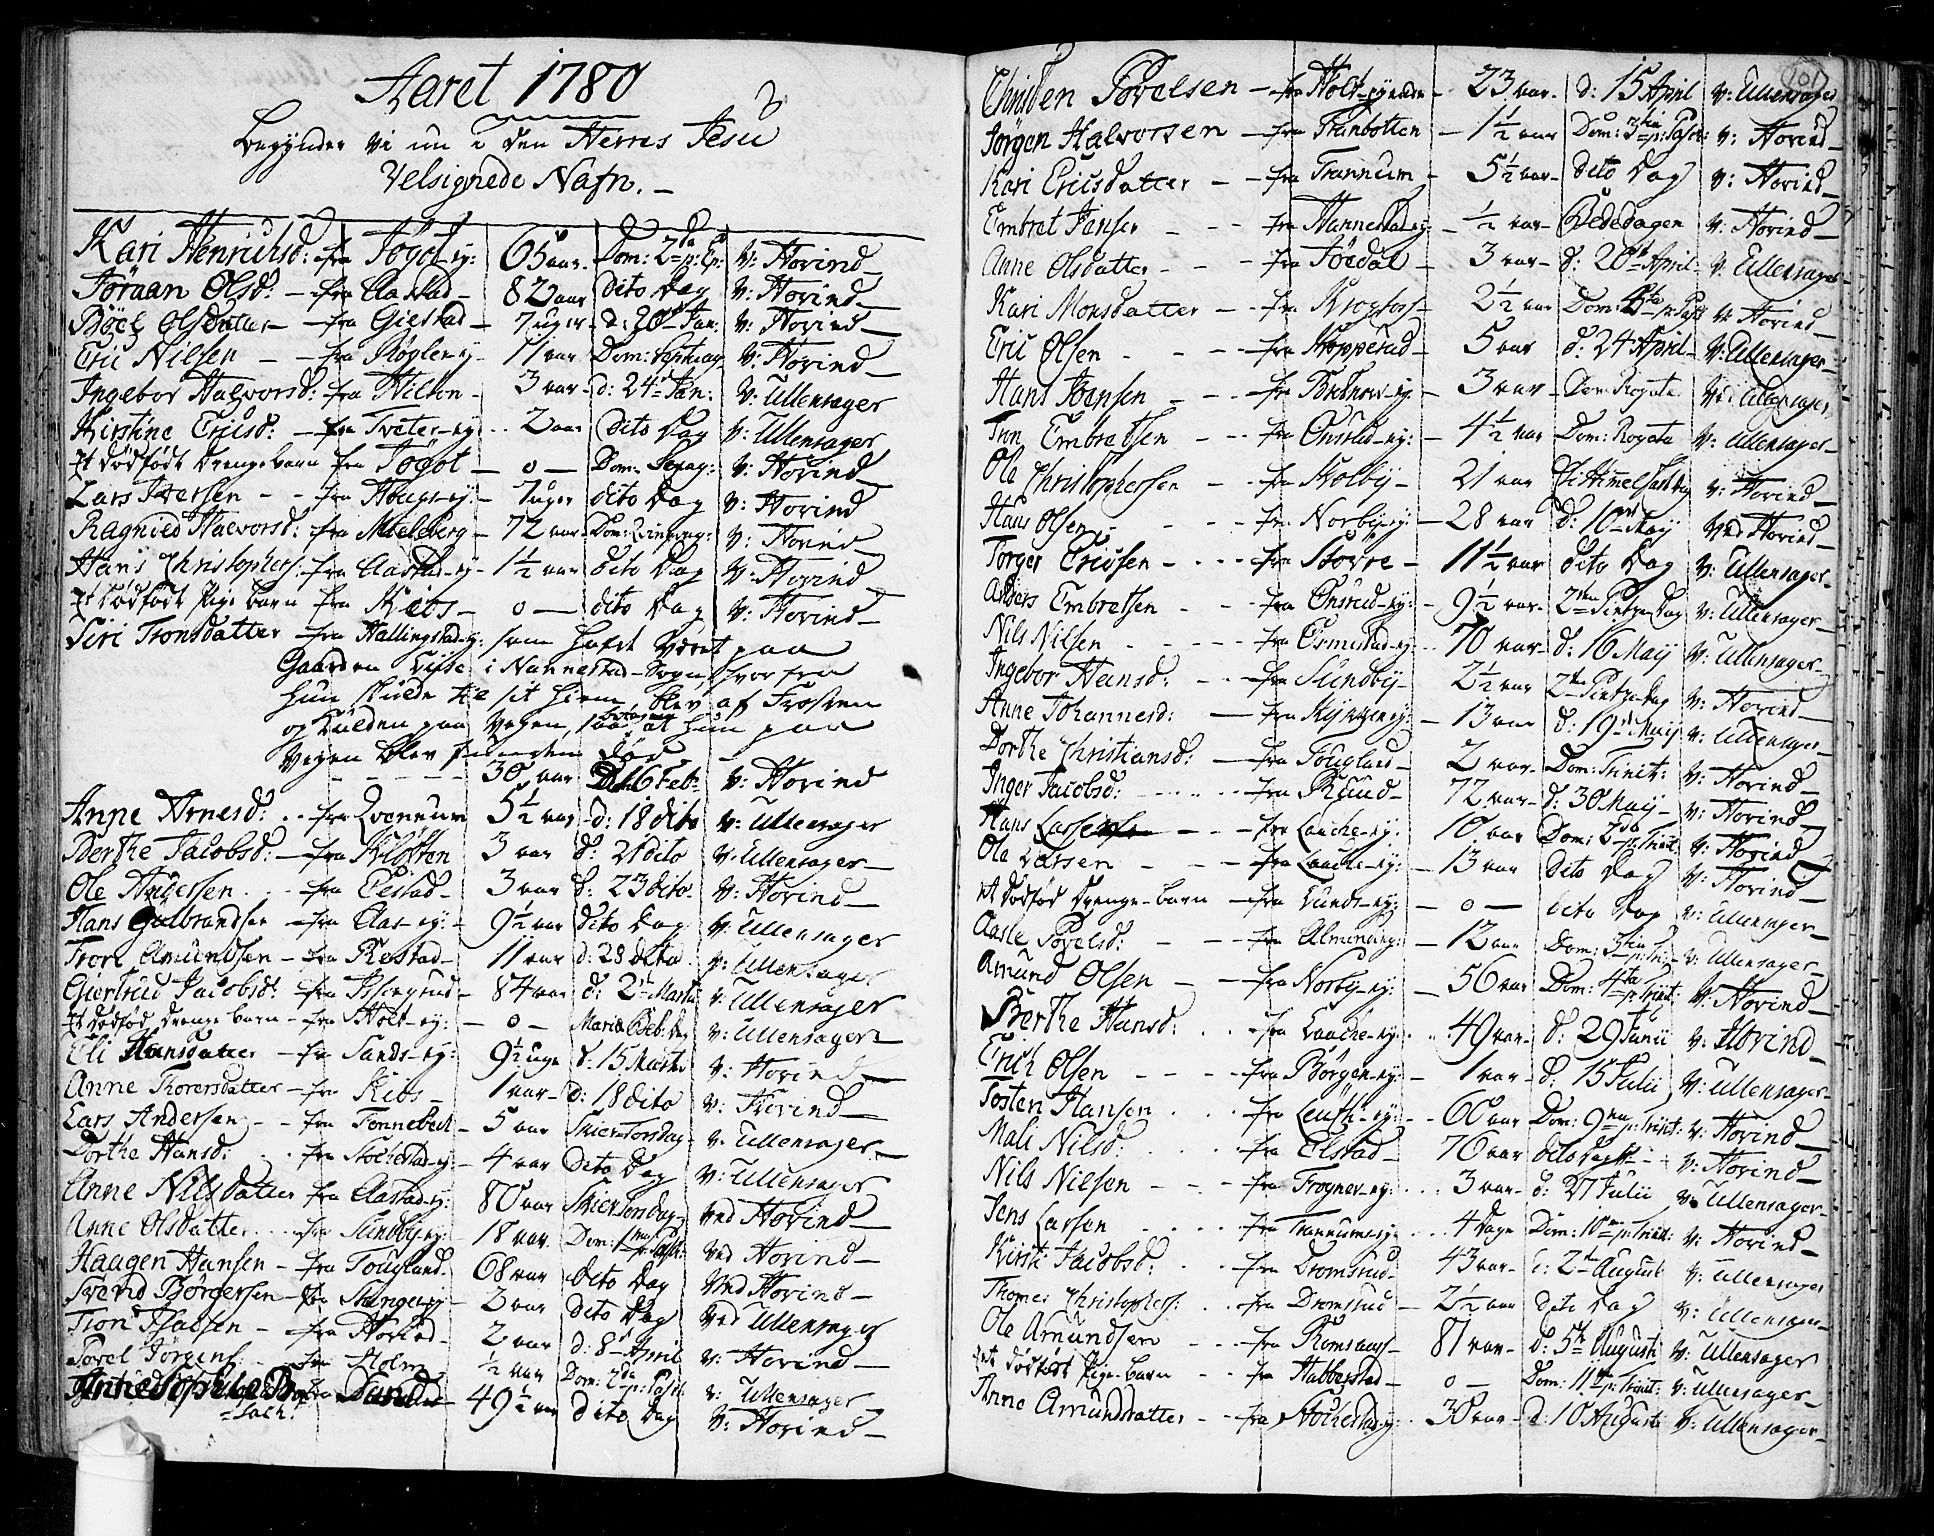 Aaret 1780
begynder vi nu i den Herres Jesu
Velsignede Nafn. –
Kari Henrichsd: – fra Jøgot-ey: 65 aar. Dom: 2da p: Ep: V: Hovind –
Jøraan Olsd: – fra Aastad – 82 aar dito Dag V: Hovind –
Olsdatter – fra Giestad – 7 uger – d: 20de Jan: V: Hovind –
Eric Nilsen – – fra Røgler-ey – 11 aar Dom: Septuag V: Hovind –
Ingebor Halvorsd: fra Hilton – 3 aar – d: 24de Jan: V: Ullensager
Kirstine Ericsd: – fra Tveter-ey – 2 aar dito Dag V: Ullensager
Et dødfødt drengebarn fra Jøgot – o – Dom: Sexag: V: Hovind –
Lars Iversen – – fra Houg-ey: – 7 uger dito Dag V: Hovind
Ragnild Halvorsd: fra Mieleberg – 72 aar – Dom: Qvinqvag: V: Hovind –
Hans Christophers: fra Aastad-ey – 1½ aar dito Dag V: Hovind –
Et dødfødt Pige barn fra Kiøs – o – dito Dag V: Hovind –
Siri Tronsdatter – fra Hallingstad-ey: som hafde været paa
Gaarden i Nannestad-Sogn, hvorfra
hun skulde til sit hiem, blev af Frosten
og Kulden paa Vejen, at hun paa
Vejen blev død –
30 aar D: 16 Feb: V: Hovind
Anne Arnesd: – fra Qvennum 5½ aar – d: 18 dito V: Ullensager
Berthe Jacobsd: – fra Kløften 3 aar d: 21 dito V: Ullensager –
Ole Andersen – fra – 3 aar d: 23 dito – V: Hovind –
Hans Gulbrandsen – fra Aas-ey: – 9½ aar dito Dag V: Ullensager
Tron Amundsen – fra Restad – 11 aar d: 28 dito V: Ullensager
Giertrud Jacobsd: fra – 84 aar d: 2de Martii V: Ullensager
Et dødfød drenge barn – fra Holt-ey: – o – Mariæ Beb: Dag V: Ullensager
Eli Hansdatter – fra Sands-ey: 9½ uge d: 15 Martii V: Hovind
Anne Thorersdatter – fra Kiøs – 1 aar – d: 18 dito V: Hovind –
Lars Andersen – – fra Tønnebech – 5 aar Skier-Torsdag – V: Ullensager –
Dorthe Hansd: – fra Stochestad-ey: – 4 aar dito Dag V: Ullensager
Anne Nilsdatter fra Aastad-ey: 80 aar Skiertorsdag – ved Hovind –
Anne Olsdatter – fra Sundby-ey: 18 aar Dom: 1ma p: Pasch: ved Hovind –
Haagen Hansen – fra Tougland – 68 aar dito Dag Ved Hovind –
Svend Børgersen – fra Stange-ey – 3 aar dito Dag ved Ullensager
Tron Isacsen – fra – 2 aar d: 8de April V: Hovind –
Povel Jørgens: – fra Holm ½ aar Dom: 2da p: Pasch V: Ullensager –
Anne Sophie fra Sand 49½ aar dito Dag V: Hovind –
101
Christen Povelsen – fra Holt-ey – 23 aar – d: 15 April V: Ullensager
Jørgen Halvorsen – fra Tranbotten – 1½ aar Dom: 3tia p: Pasch: V: Hovind –
Kari Ericsdatter – – fra Trannum – 5½ aar – dito Dag V: Hovind –
Embret Jansen – – – fra Nannestad-ey: – ½ aar – Bededagen V: Hovind –
Anne Olsdatter – – – fra Jødal – 3 aar – d: 20de April – V: Ullensager
Kari Monsdatter – – fra Krogfos – 2½ aar Dom: p: Pasch V: Hovind –
Eric Olsen – – – – fra Kopperud – 5 aar d: 24 April – V: Ullensager –
Hans Joensen – – – fra – 3 aar – Dom: Rogate Ved Ullensager
Tron Embretsen – – – fra Onsrud-ey: – 4½ aar Dom: Rogate V: Ullensager –
Ole Christophersen – – fra Kolby – 21 aar Christi Himmelfartsdag V: Hovind –
Hans Olsen – – – – fra Norby-ey: – 28 aar d: 10de Maij Ved Hovind –
Torger Ericsen – – – – fra Stovre – 11½ aar dito Dag V: Ullensager –
Anders Embretsen – – – fra Onsrud-ey: – 9½ aar – 2den Pintze Dag V: Ullensager –
Nils Nilsen – – – – fra Ormestad-ey: – 70 aar – d: 16 Maij V: Ullensager –
Ingebor Hansd: – – fra Sundby – 2½ aar 2den Pintzedag V: Hovind –
Anne Johannesd: – fra – 13 aar d: 19de Maij V: Ullensager –
Dorthe Christiansd: – fra Tougland – 2 aar – Dom: Trinit: V: Hovind –
Inger Jacobsd: – – – fra Ruud – 72 aar – d: 30 Maij – V: Hovind –
Hans Larsen – – – fra Lauche-ey: 10 aar Dom: 2da p: Trinit: V: Hovind
Ole Larsen – – – fra Lauche-ey: – 13 aar dito Dag V: Hovind –
et dødfød drenge-barn – fra Lunds-ey: – o – dito Dag V: Ullensager –
Aasle Povelsd: – – – fra Alminding: – 12 aar Dom: 3tia p: Tr: – V: Ullensager –
Amund Olsen – – fra Norby-ey: – 56 aar Dom: 4ta p: Trinit: V: Hovind –
Berthe Hansd: – – fra Lauche-ey: – 49 aar – d: 29 Junii V: Hovind –
Erich Olsen – – – – fra Børgen-ey: – 1 aar – d: 15 Julii V: Ullensager –
Tosten Hansen – – – fra – 60 aar Dom: 9na p: Trinit: V: Hovind –
Mali Nilsd: – – – fra Elstad – 76 aar dito Dag – – V: Hovind –
Nils Nielsen – – – fra Trogner-ey: – 3 aar – d: 27 Julii V: Ullensager –
Jens Larsen – – – fra Trannum-ey: – 4 Dage Dom: 10ma p: Trinit: V: Hovind –
Kirsti Jacobsd: – – fra Dromsrud – 43 aar – d: 2den August V: Ullensager
Thomes Christophers: – – fra Dromsrud – 2½ aar dito Dag V: Ullensager –
Ole Amundsen – – – fra Romsaas – 81 aar – d: 5te Augusti V: Ullensager
et dødfødt Pige-barn – – fra Habberstad – o – Dom: 11ma p: Trinit: V: Ullensager –
Anne Amundsdatter – – fra Stochestad-ey: – 30 aar – d: 10 Augusti V: Ullensager –